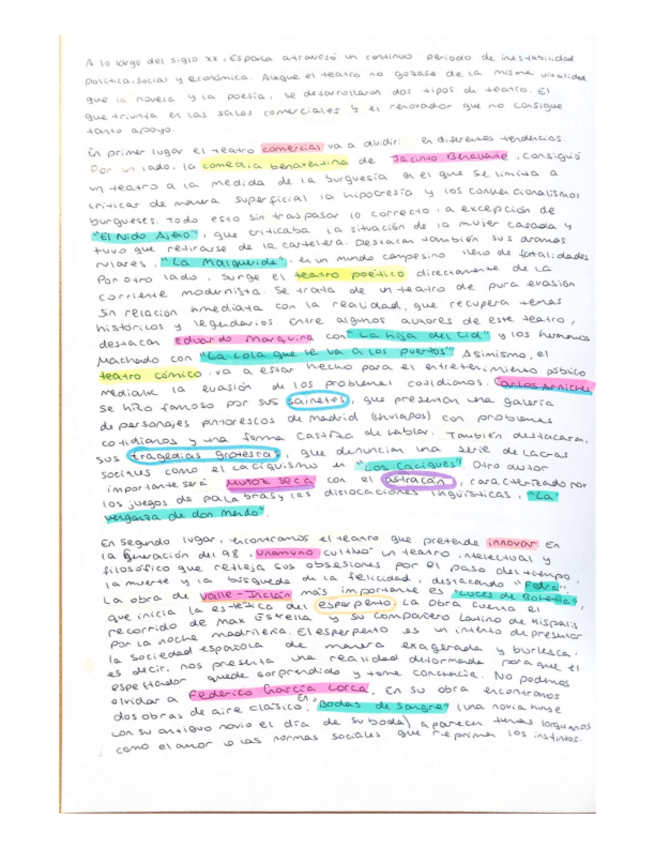 A lo largo del siglo xx, España atravesó un continuo periodo de inestabilidad
política, social y económica. Aunque el teatro no gozase de la misma vitalidad
que la novela y la poesía, se desarrollaron dos tipos de teatro. El
que triunfa en las salas comerciales y el renovador que no consigue
tanto apoyo.
En primer lugar el teatro comercial va a dividir en diferentes tendencias.
Por un lado, la comedia benaventina de Jacinto Benavente, consiguió
un teatro a la medida de la burguesía en el que se limita a
criticar de manera superficial la hipocresía y los convencionalismos
burgueses. Todo esto sin traspasar lo correcto, a excepción de
"El Nido Ajeno", que criticaba la situación de la mujer casada y
tuvo que retirarse de la cartelera. Destacan también sus dramas
rurales, "La Malquerida", en un mundo campesino lleno de fatalidades
Por otro lado, surge el teatro poético directamente de la
corriente modernista. Se trata de un teatro de pura evasión
sin relación inmediata con la realidad, que recupera temas
históricos y legendarios. Entre algunos autores de este teatro,
destacan Eduardo Marquina con "La hija del Cid" y los hermanos
Machado con "La Lola que se va a los puertos". Asimismo, el
teatro cómico, va a estar hecho para el entretenimiento público
mediante la evasión de los problemas cotidianos. Carlos Arniches
se hizo famoso por sus sainetes, que presentan una galería
de personajes pintorescos de Madrid (chulapos) con problemas
cotidianos y una forma castiza de hablar. También destacaran,
sus tragedias grotescas, que denuncian una serie de lacras
sociales como el caciquismo en "Los Caciques". Otro autor
importante será Muñoz Seca con el astracán, caracterizado por
los juegos de palabras y las dislocaciones lingüísticas, "La
venganza de don Mendo".
En segundo lugar, encontramos el teatro que pretende innovar. En
la Generación del 98, Unamuno cultivó un teatro intelectual y
filosófico que refleja sus obsesiones por el paso del tiempo,
la muerte y la búsqueda de la felicidad, destacando "Fedra".
La obra de Valle-Inclán más importante es "Luces de Bohemia",
que inicia la estética del esperpento. La obra cuenta el
recorrido de Max Estrella y su compañero Latino de Hispalis
por la noche madrileña. El esperpento es un intento de presentar
la sociedad española de manera exagerada y burlesca,
es decir, nos presenta una realidad deformada para que el
espectador quede sorprendido y tome conciencia. No podemos
olvidar a Federico García Lorca. En su obra encontramos
dos obras de aire clásico: En "Bodas de Sangre" (una novia huye
con su antiguo novio el día de su boda) aparecen temas lorquianos
como el amor o las normas sociales que reprimen los instintos.